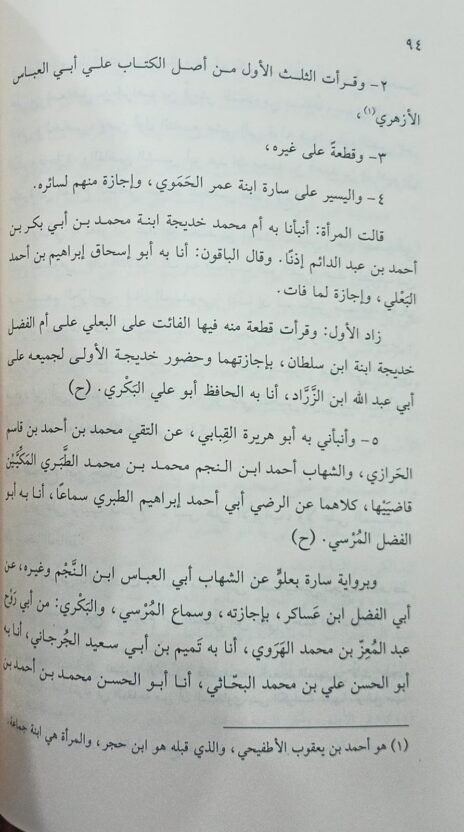 ٩٤
٢- وقرأت الثلث الأول من أصل الكتاب علي أبي العباس
الأزهري(١)،
٣- وقطعةً على غيره،
٤- واليسير على سارة ابنة عمر الحَمَوي، وإجازة منهم لسائره.
قالت المرأة: أنبأنا به أم محمد خديجة ابنة محمد بن أبي بكر بن
أحمد بن عبد الدائم إذنًا. وقال الباقون: أنا به أبو إسحاق إبراهيم بن أحمد
البَعْلي، وإجازة لما فات.
زاد الأول: وقرأت قطعة منه فيها الفائت على البعلي على أم الفضل
خديجة ابنة ابن سلطان، بإجازتهما وحضور خديجة الأولى لجميعه على
أبي عبد الله ابن الزَّرَّاد، أنا به الحافظ أبو علي البَكْري. (ح)
٥- وأنبأني به أبو هريرة القِبابي، عن التقي محمد بن أحمد بن قاسم
الحَرازي، والشهاب أحمد ابن النجم محمد بن محمد الطَّبَري المَكِّيَّيْن
قاضيَيْها، كلاهما عن الرضي أبي أحمد إبراهيم الطبري سماعًا، أنا به أبو
الفضل المُرْسي. (ح)
وبرواية سارة بعلوٍّ عن الشهاب أبي العباس ابن النَّجْم وغيره، عن
أبي الفضل ابن عَساكر، بإجازته، وسماع المُرْسي، والبَكْري: من أبي رَوْح
عبد المُعِزّ بن محمد الهَرَوي، أنا به تَميم بن أبي سعيد الجُرجاني، أنا به
أبو الحسن علي بن محمد البحّاثي، أنا أبو الحسن محمد بن أحمد بن
(١) هو أحمد بن يعقوب الأطفيحي، والذي قبله هو ابن حجر، والمرأة هي ابنة جماعة.